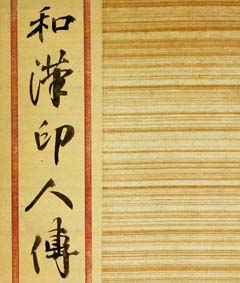 和漢印人傳